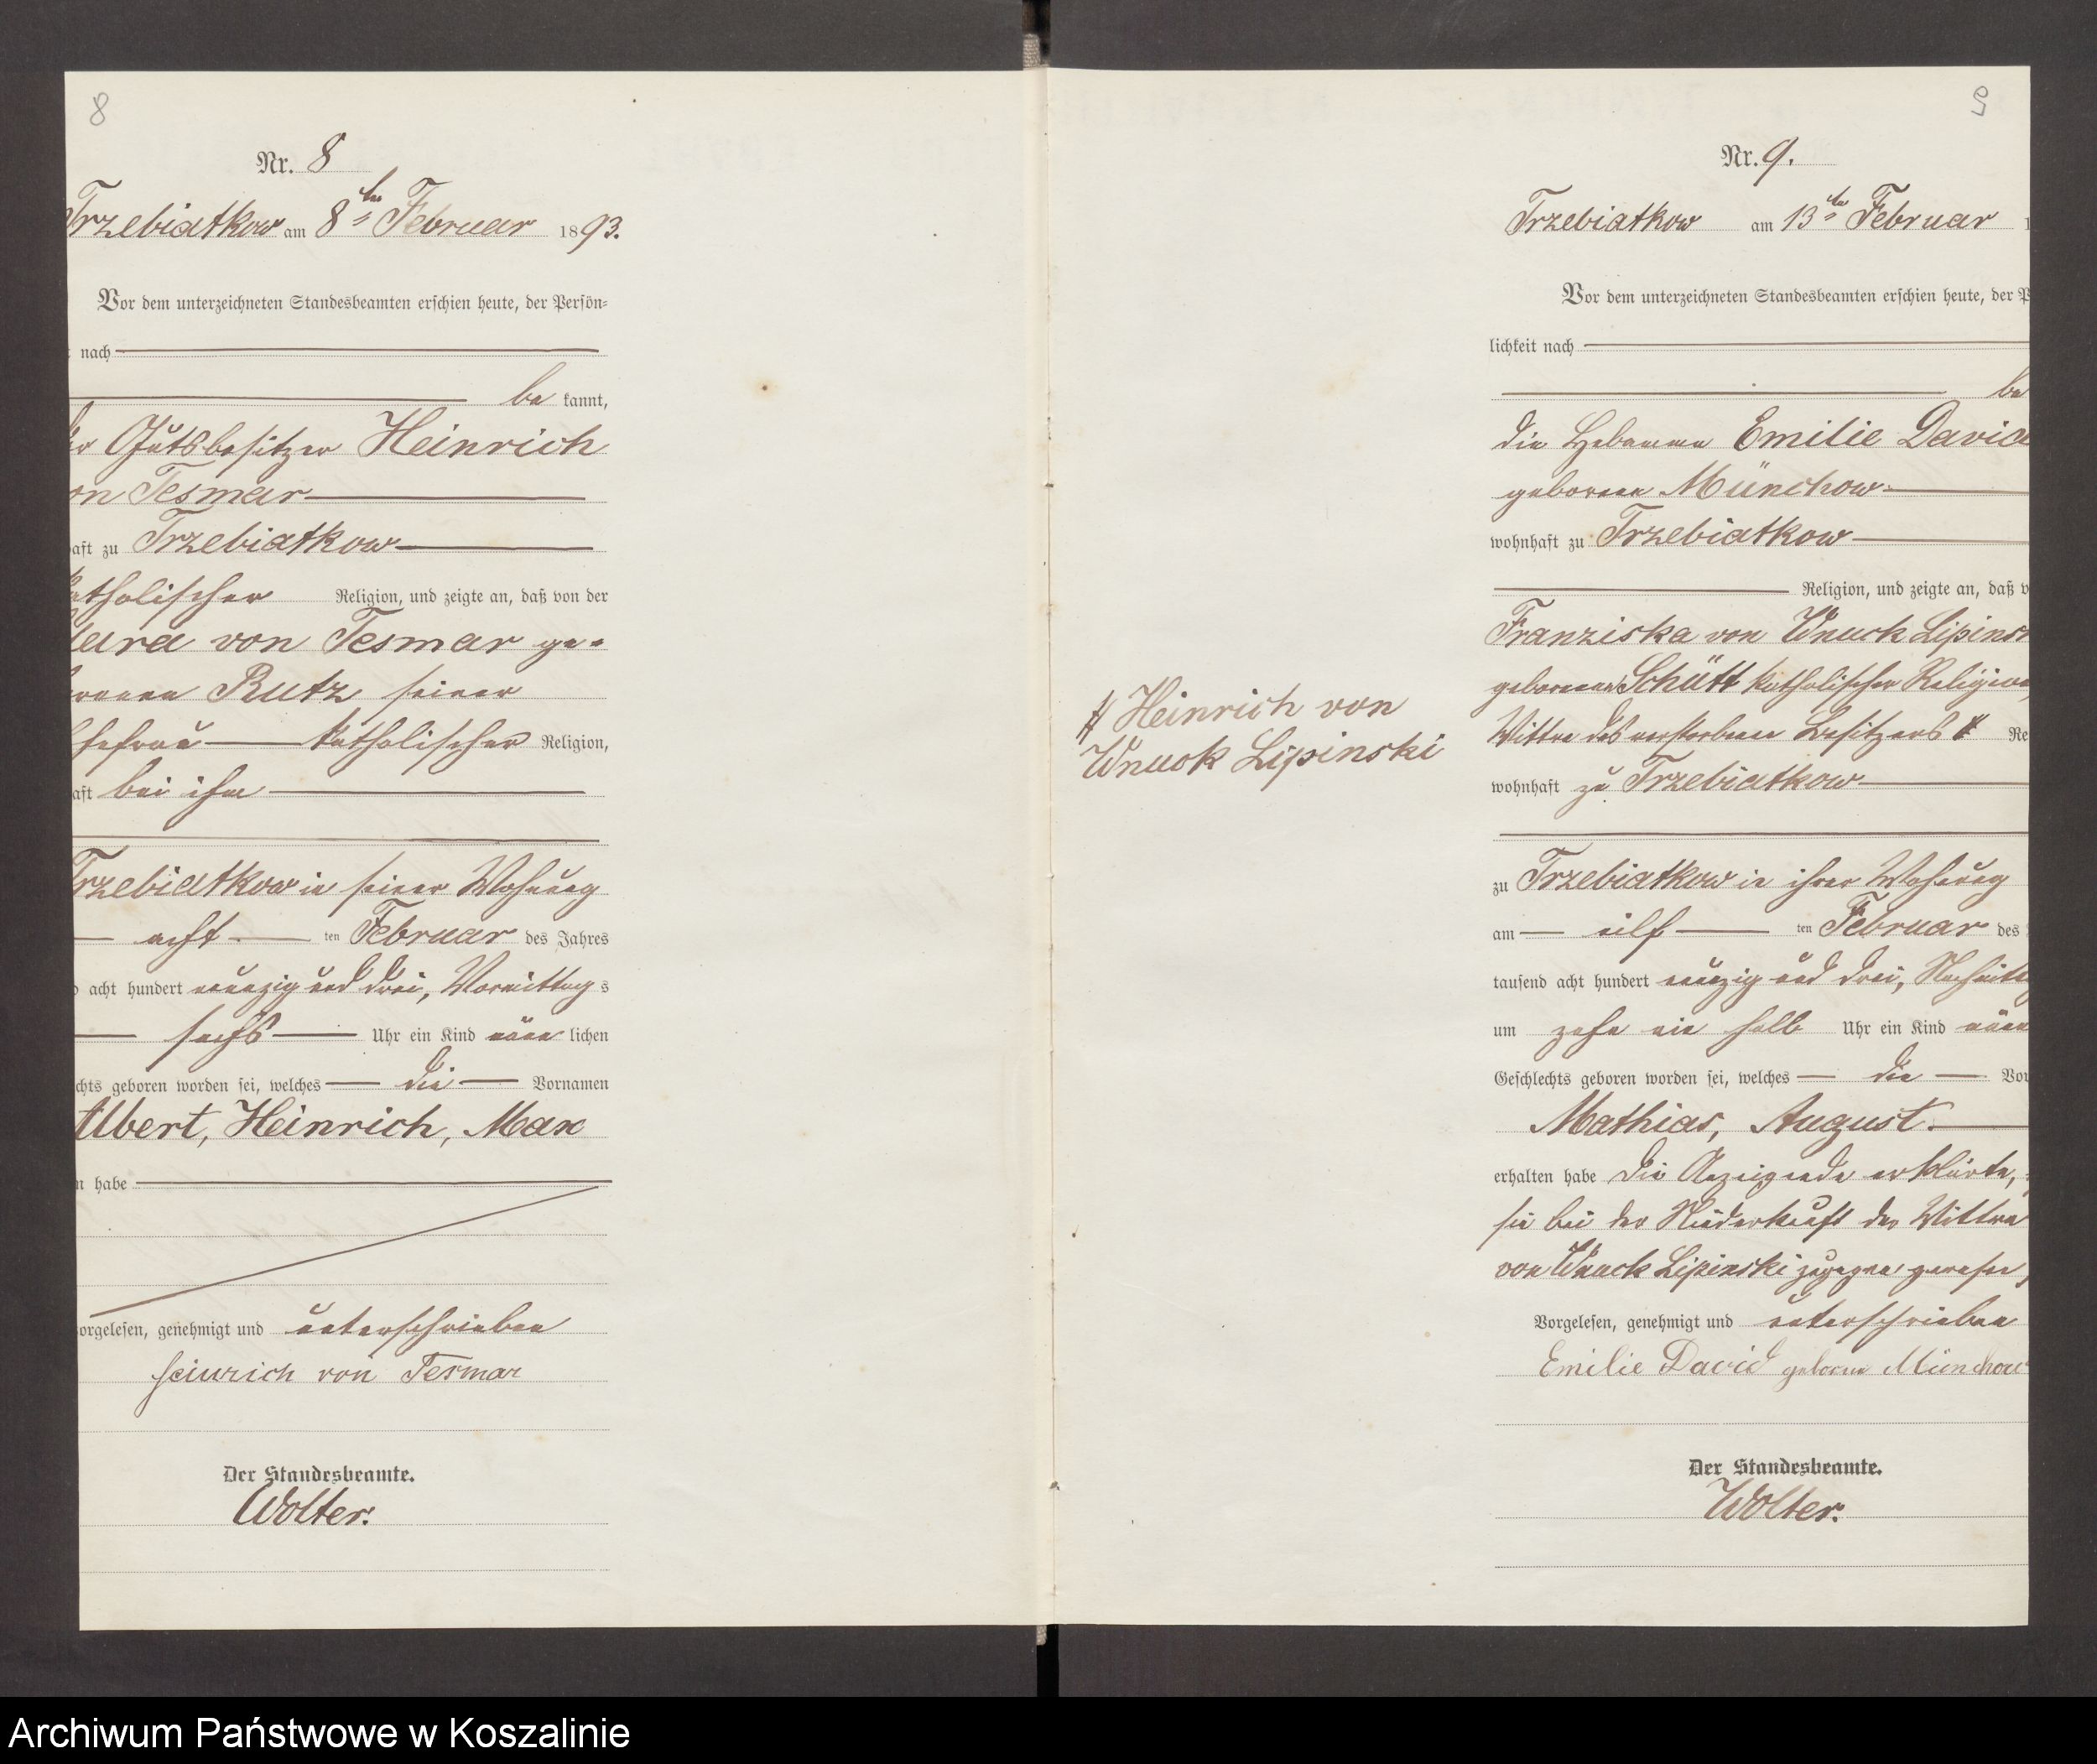 8
Nr. 8
Trzebiatkow am 8ten Februar 1893.
Vor dem unterzeichneten Standesbeamten erschien heute, der Persön-
nach
be kannt,
Gutsbesitzer Heinrich
on Tesmar
aft zu Trzebiatkow
katholischer Religion, und zeigte an, daß von der
lara von Tesmar ge-
borenen Rutz seiner
Ehefrau katholischer Religion,
aft bei ihm
Trzebiatkow in seiner Wohnung
acht ten Februar des Jahres
acht hundert neunzig und drei, Vormittags
sechs Uhr ein Kind männlichen
chts geboren worden sei, welches die Vornamen
Albert, Heinrich, Max
n habe
orgelesen, genehmigt und unterschrieben
Heinrich von Tesmar
Der Standesbeamte.
Wolter.
9
Nr. 9.
Trzebiatkow am 13ten Februar 1
Vor dem unterzeichneten Standesbeamten erschien heute, der P
lichkeit nach
be
die Hebamme Emilie David
geborene Münchow
wohnhaft zu Trzebiatkow
Religion, und zeigte an, daß v
Franziska von Wnuck Lipinsk
geborenen Schütt katholischer Religion,
Wittwe des verstorbenen Besitzers # Re
# Heinrich von
Wnuck Lipinski
wohnhaft zu Trzebiatkow
zu Trzebiatkow in ihrer Wohnung
am eilf ten Februar des
tausend acht hundert neunzig und drei, Nachmittag
um zehn ein halb Uhr ein Kind männ
Geschlechts geboren worden sei, welches die Vor
Mathias, August.
erhalten habe Die Anzeigende erklärte,
sie bei der Niederkunft der Wittwe
von Wnuck Lipinski zugegen gewesen
Vorgelesen, genehmigt und unterschrieben
Emilie David geborne Münchow
Der Standesbeamte.
Wolter.
Archiwum Państwowe w Koszalinie